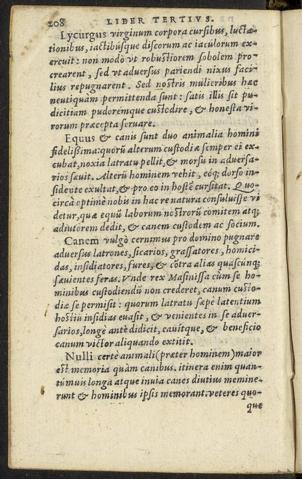 208 LIBER TERTIVS.
Lycurgus virginum corpora cursibus, lucta-
tionibus, iactibúsque discorum ac iaculorum ex-
ercuit: non modò vt robustiorem sobolem pro-
crearent, sed vt aduersus pariendi nixus faci-
lius repugnarent. Sed nostris mulieribus hæc
neutiquàm permittenda sunt: satis illis sit pu-
dicitiam pudorémque custodire, & honesta vi-
rorum præcepta seruare.
Equus & canis sunt duo animalia homini
fidelissima: quorū alterum custodiæ semper ei ex-
cubat, noxia latratu pellit, & morsu in aduersa-
rios sæuit. Alterū hominem vehit, eóq; dorso in-
sidente exultat, & pro eo in hostē cursitat. Quo-
circà optimè nobis in hac re natura consuluisse vi
detur, quæ equū laborum nostrorū comitem atq;
adiutorem dedit, & canem custodem ac socium.
Canem vulgò cernimus pro domino pugnare
aduersus latrones, sicarios, grassatores, homici-
das, insidiatores, fures, & cōtra alias quascūnq;
sæuientes feras. Vnde rex Masinissa cùm se ho-
minibus custodiendū non crederet, canum custo-
diæ se permisit: quorum latratu sæpè latentium
hostiū insidias euasit, & venientes in se aduer-
sarios, longè antè didicit, cauitque, & beneficio
canum victor aliquando extitit.
Nulli certè animali (præter hominem) maior
est memoria quàm canibus. itinera enim quan-
tumuis longa atque inuia canes diutius memine-
runt & hominibus ipsis memorant: veteres quo-
que